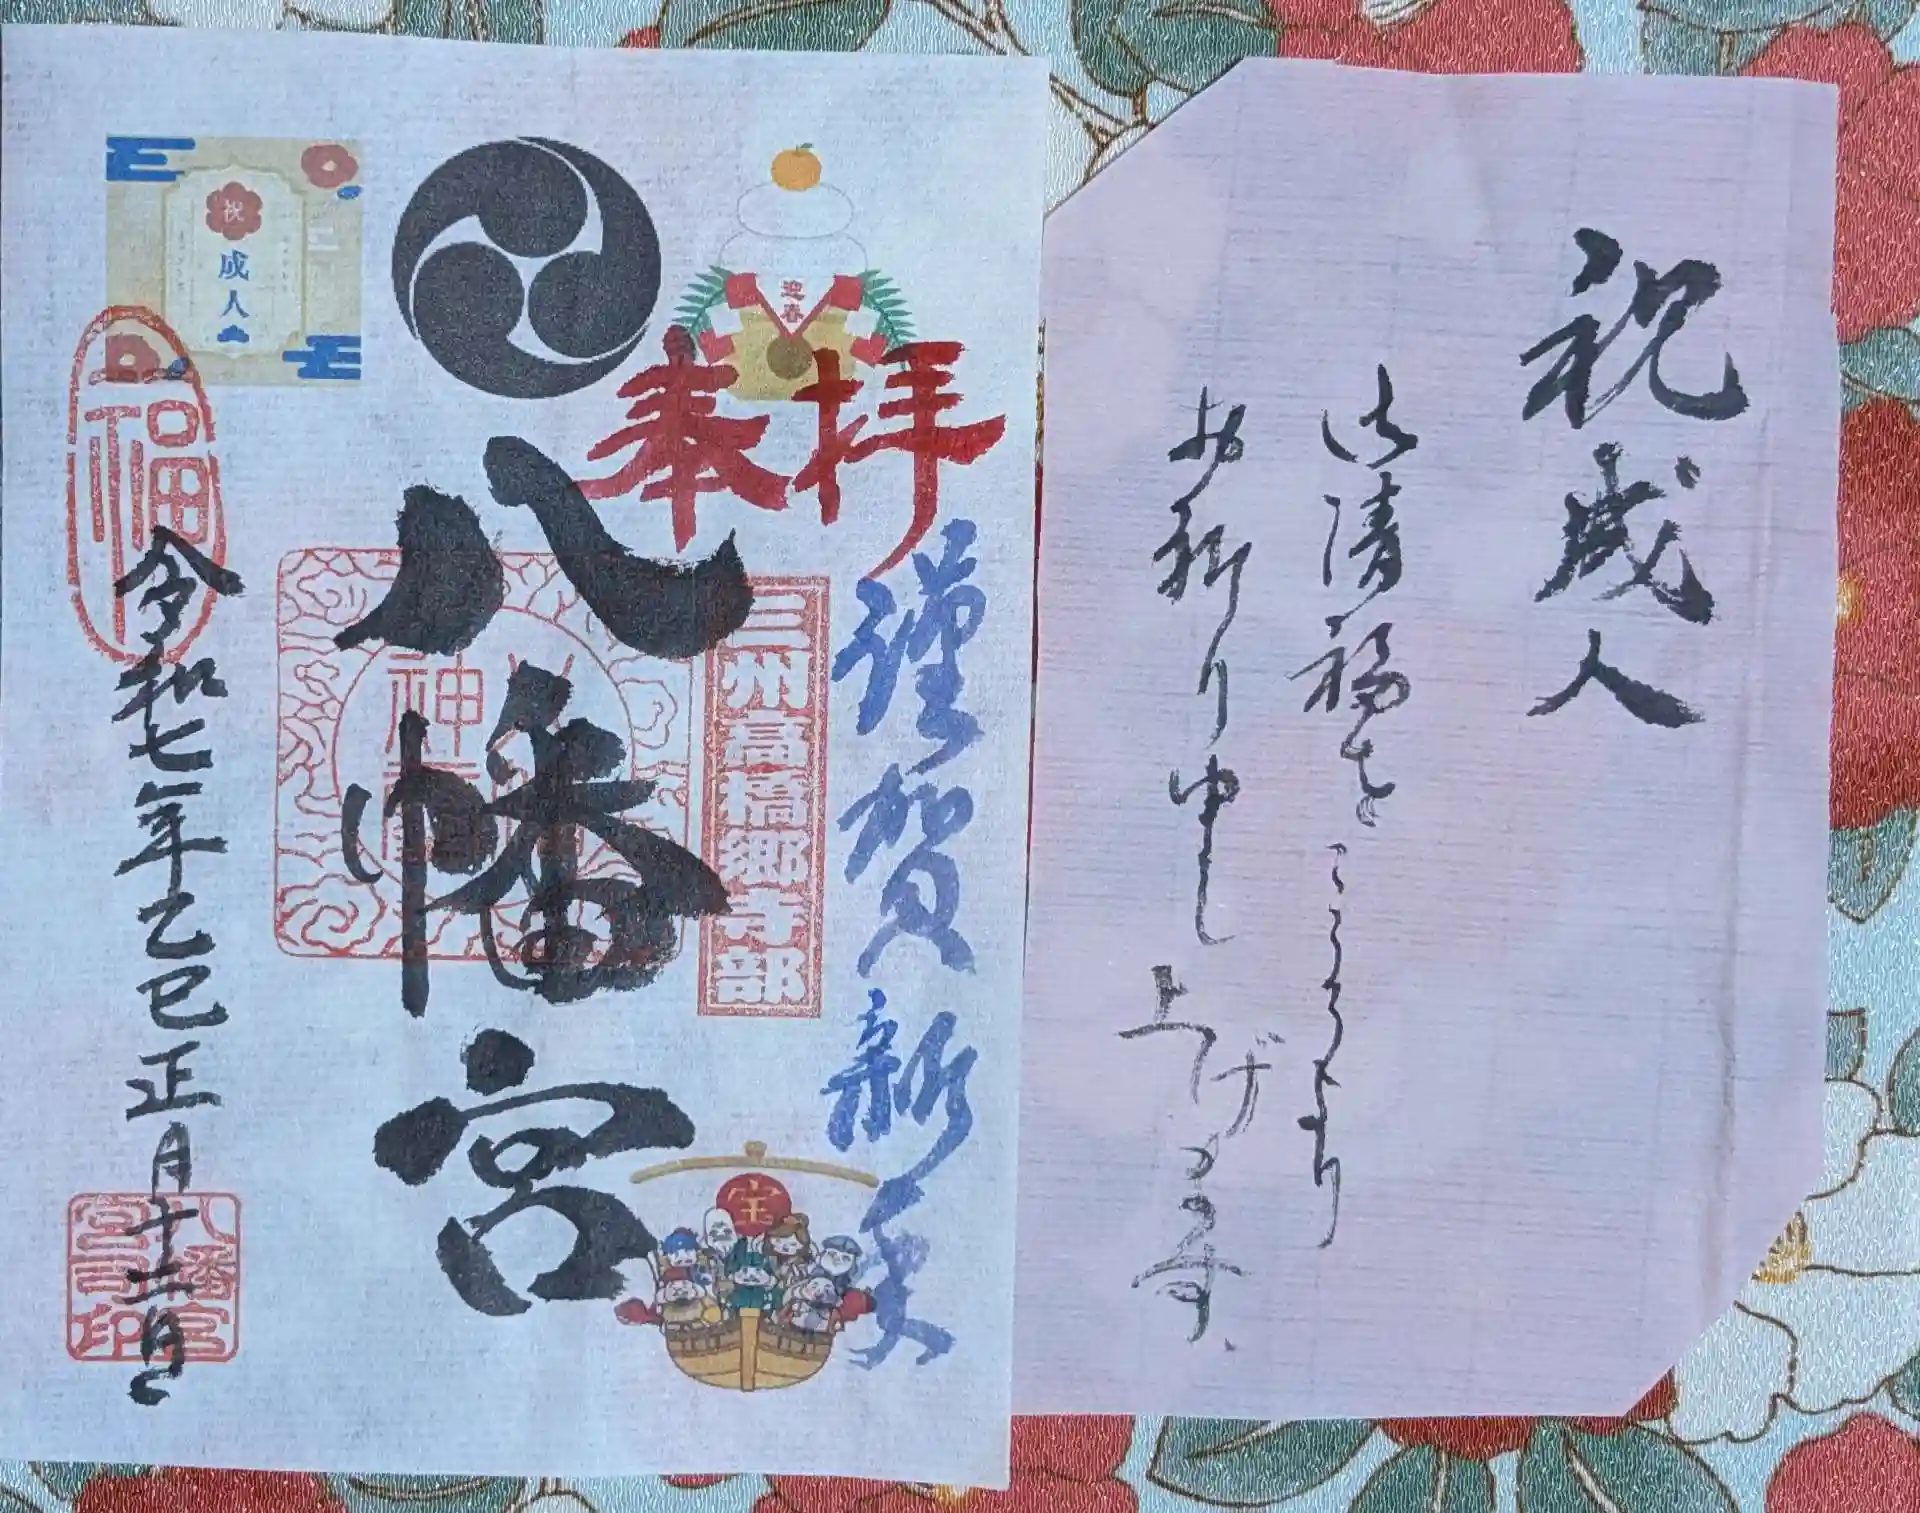 祝成人
御清福をこころより
お祈り申し上げます
迎春
奉拝
謹賀新年
三州高橋郷寺部
八幡宮
祝
成人
福
令和七年乙巳正月十二日
八幡宮
宮司印
宝